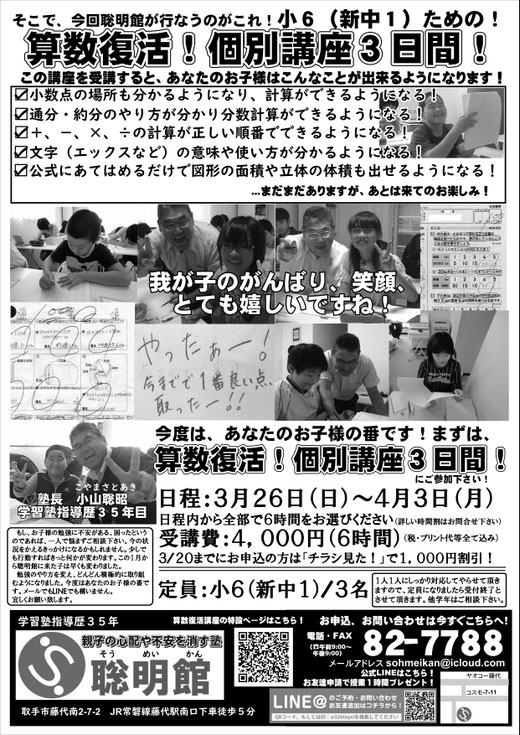 そこで、今回聡明館が行なうのがこれ！小６（新中１）ための！
算数復活！個別講座３日間！
この講座を受講すると、あなたのお子様はこんなことが出来るようになります！
☑小数点の場所も分かるようになり、計算ができるようになる！
☑通分・約分のやり方が分かり分数計算ができるようになる！
☑＋、－、×、÷の計算が正しい順番でできるようになる！
☑文字（エックスなど）の意味や使い方が分かるようになる！
☑公式にあてはめるだけで図形の面積や立体の体積も出せるようになる！
…まだまだありますが、あとは来てのお楽しみ！
我が子のがんばり、笑顔、
とても嬉しいですね！
やったぁー！
今までで１番良い点
取ったー！！
今度は、あなたのお子様の番です！まずは、
算数復活！個別講座３日間！
にご参加下さい！
こやまさとあき
塾長 小山聡昭
学習塾指導歴３５年目
日程：３月２６日（日）～４月３日（月）
日程内から全部で６時間をお選びください（詳しい時間割はお問合せ下さい）
受講費：４，０００円（６時間）（税・プリント代等全て込み）
3/20までにお申込の方は「チラシ見た！」で１，０００円割引！
定員：小６（新中１）/３名
１人１人にしっかり対応してやらせて頂き
ますので、定員になりましたら受付終了と
させて頂きます。他学年はご相談下さい。
もし、お子様の勉強に不安がある、困ったという
のであれば、一人で悩まずご相談下さい。今の状
況をかえるきっかけになるかもしれません。少しで
も行動すればきっと何かが変わります。この１月か
ら聡明館に来た子は早くも変わりました。
勉強のやり方を変え、どんどん積極的に取り組
むようになりました。今度はあなたのお子様の番で
す。メールでもLINEでも構いません。
宜しくお願い致します。
学習塾指導歴３５年
親子の心配や不安を消す塾
そう めい かん
聡明館
取手市藤代南2-7-2 JR常磐線藤代駅南口下車徒歩５分
算数復活講座の特論ページはこちら！
お申込、お問い合わせは今すぐこちらへ！
電話・FAX
82-7788
メールアドレス sohmeikan@icloud.com
公式LINEはこちら！
お友達申請で授業１時間プレゼント！
LINE@
のご予約・お問い合わせ
お友達追加はコチラから！
ヤオコー藤代
コスモ-7-11